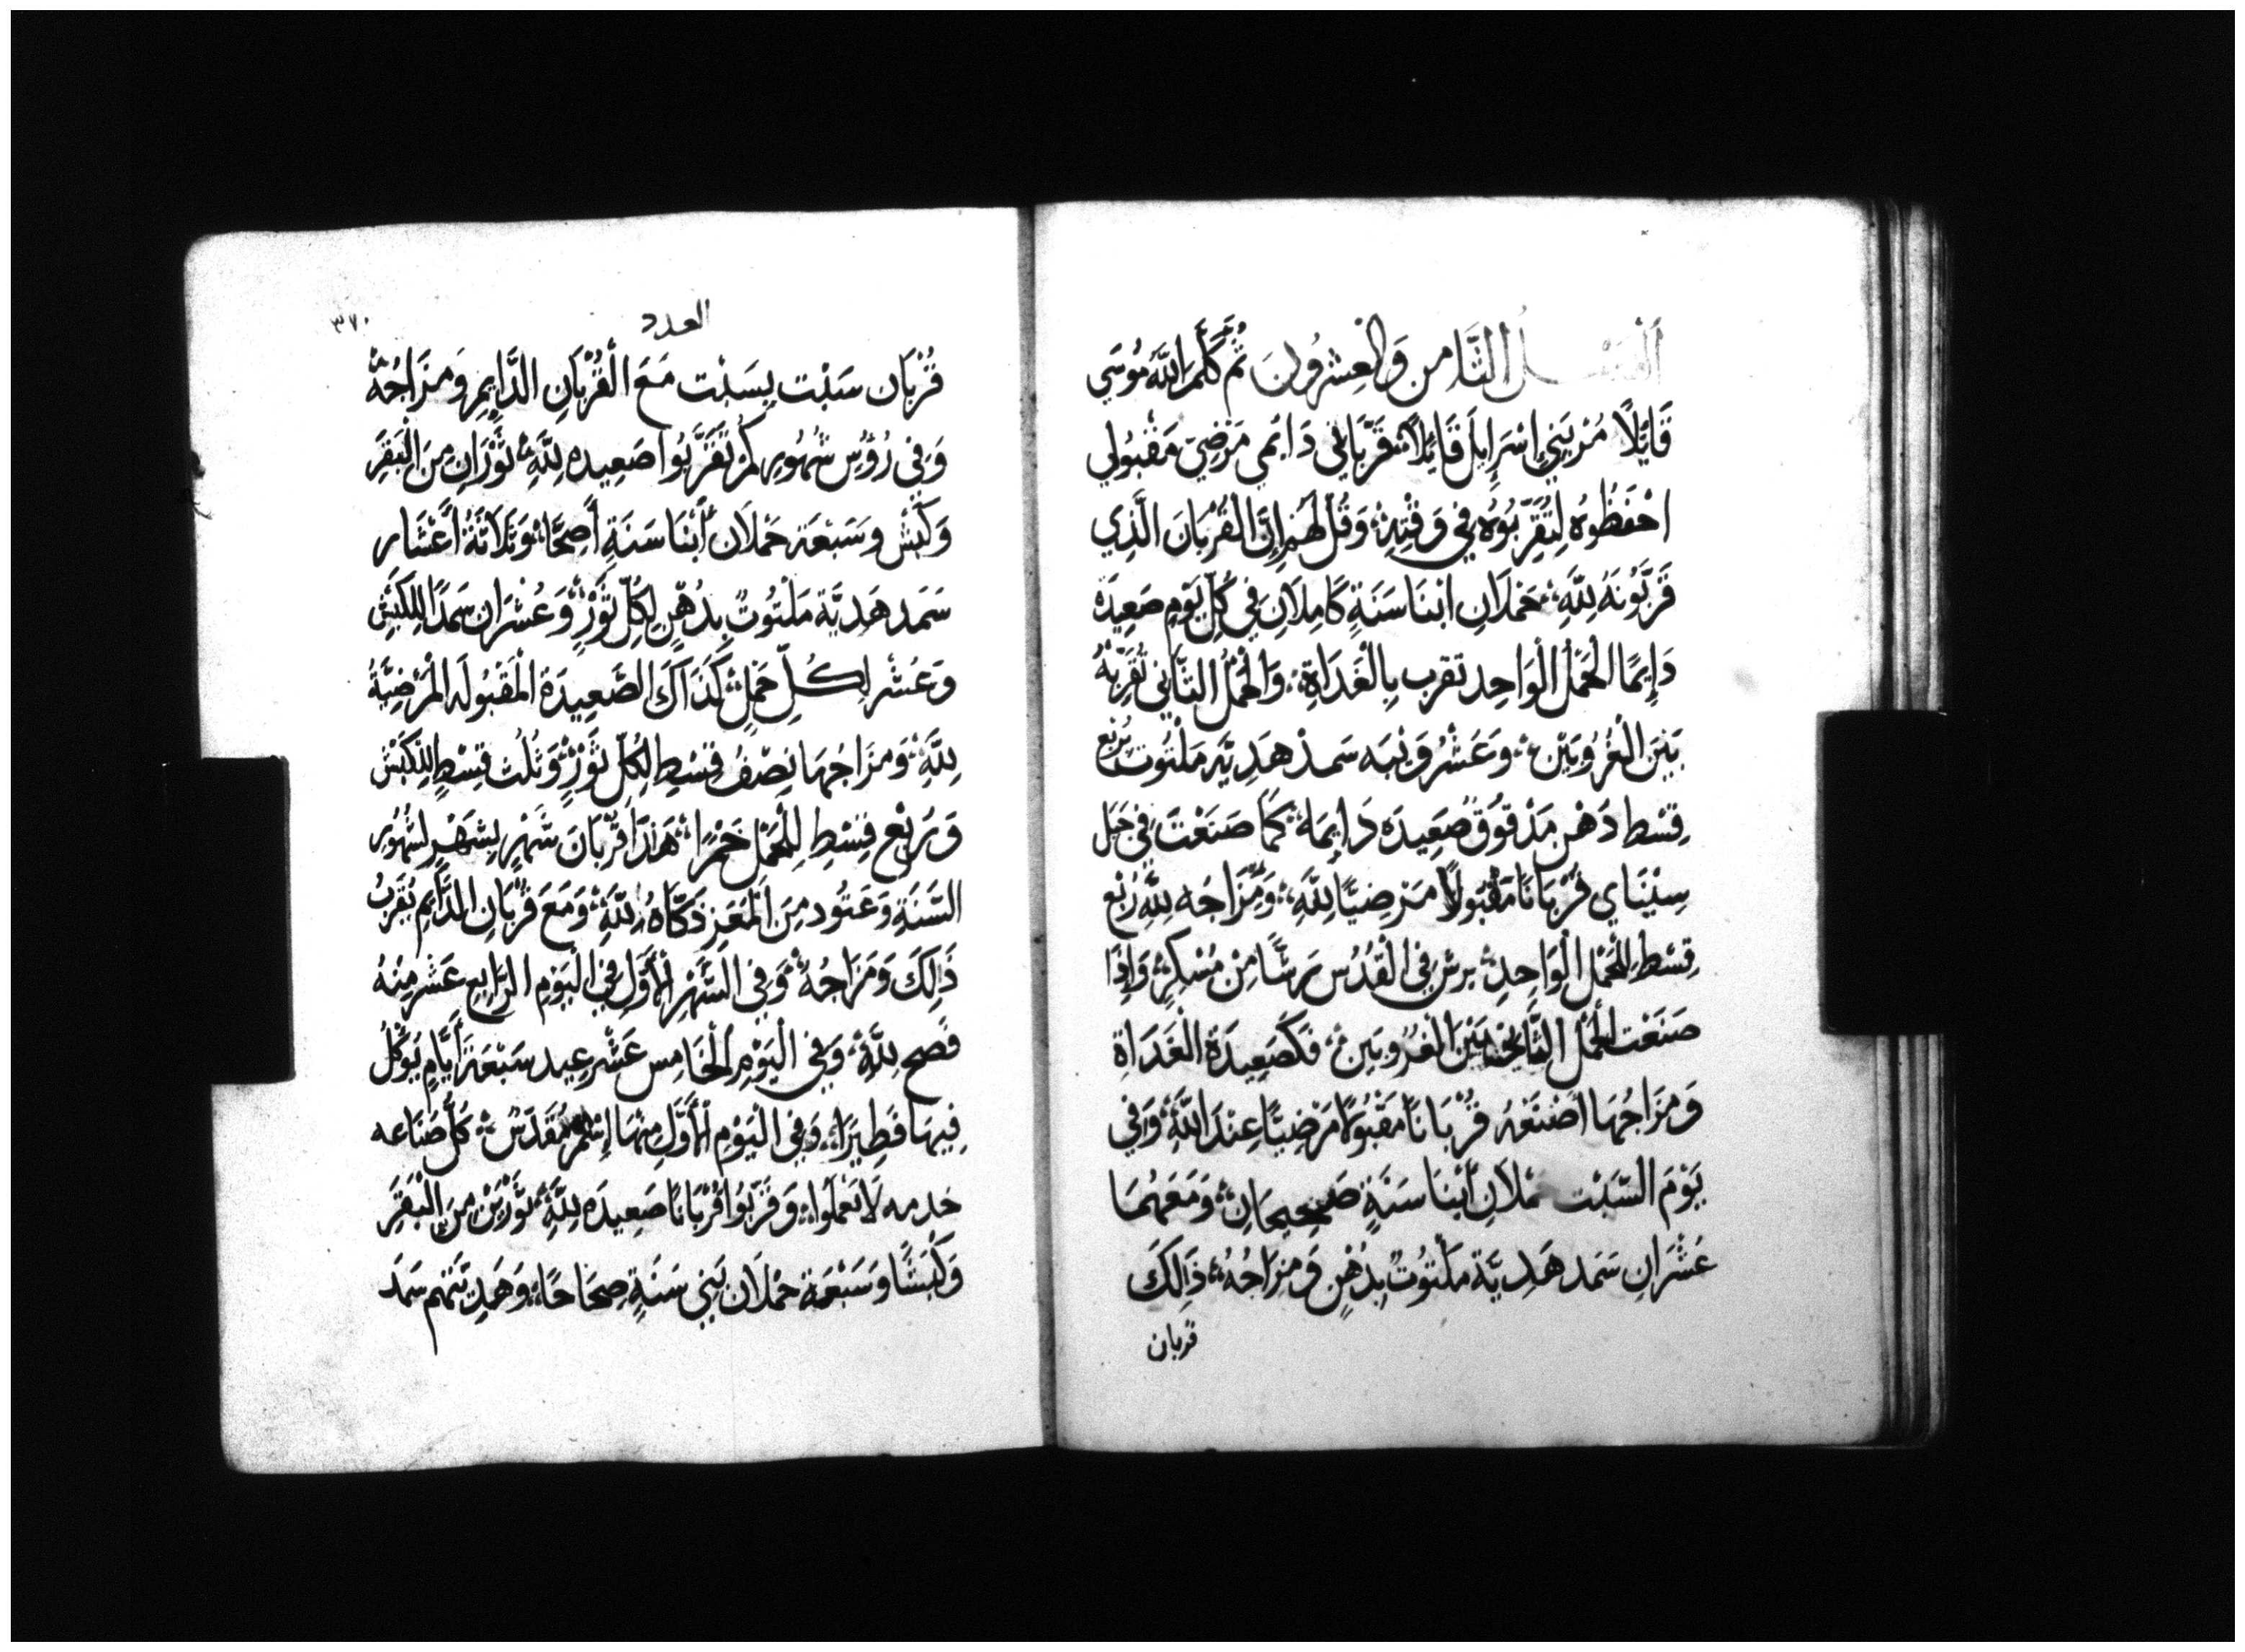 الفصل الثَّامن وَالعِشرُونَ ثُم كَلَّمَ اللَّهُ مُوسَى
قَايلًا مُرْ بَنِي اِسْرَايِلَ قَائِلًا قُرْبَانِي دَايمي مَرْضِيّ مَقْبُولي
احْفَظُوهُ لِتُقَرِّبُوُه فِي وَقْتِهِ وَقُل لَهُم إِنَّ القُرْبَانَ الَّذِي
قَرَّبُونَهُ لِلَّهِ حَمَلَانِ ابنَا سَنَةٍ كَامِلَانِ فِي كُلِّ يَوْمٍ صَعِيدَة
دَايمًا الحَمَلُ الْوَاحِد تقرب بِالغَدَاةِ وَالحَمَلُ الثَّانِي تُقَرِّبْهُ
بَيْنَ الْغُرُوبَيْنِ وَعَشْرُ وَيْبَه سَمد هَدِيَّه مَلْتُوت بُربع
قِسْط دَهْن مَدْقُوقٍ صَعِيدَه دَايِمَه كَمَا صَنَعْتَ فِي جَبَل
سِيْنَاي قُرْبَانًا مَقْبُولًا مَرضِيًّا لِلَّهِ وَمِزَاجُه لِلَّهِ رُبْع
قِسْط لِلحَمَل الوَاحِدِ يرش فِي القُدُس رشًّا مِنْ مُسْكِرٍ وَاِذَا
صَنَعْت الحَمَل الثَّانِي بَيْنَ الغُرُوبَينِ فَكَصَعِيدَة الغَدَاةِ
وَمزَاجُهَا اصْنَعْهُ قُرْبَانًا مَقْبُولًا مَرْضِيًّا عِنْدَ اللَّهِ وَفِي
يَوْمَ السَّبْت حملَانِ أبْنا سَنَةٍ صَحِيحَانِ وَمَعَهُمَا
عَشْرَانِ سَمد هَدِيَّة مَلْتُوتٌ بِدُهْنٍ وَمِزَاجُهُ ذَالِكَ
قربان
العدد
٣٧٠
قُرْبَان سَبْت بِسَبْت مَعَ الْقُرْبَانِ الدَّايِمِ وَمزَاجُهُ
وَفِي رُؤُسِ شُهُورِكُم تُقَرِّبُوا صَعِيدَه لِلَّهِ ثَوْرَانِ مِنَ الْبَقَرِ
وَكَبْش وَسَبْعَة حَمْلَان أَبْنَا سَنَةٍ أَصِحَّا وَثَلَاثَةُ أَعْشَار
سَمَد هَدِيَّة مَلْتُوتٌ بِدُهْنٍ لِكُلِّ ثَوْرٍ وَعُشْرَانِ سَمَدًا لِلكَبْشِ
وَعَشْر لِكُلِّ حَمَلٍ كَذَاكَ الصَّعِيدَة المَقْبُولَه الْمَرْضِيَّةُ
لِلَّهِ وَمزَاجُهَا نِصْفُ قِسْطٍ لِكُلِّ ثَوْرٍ وَثُلُث قِسْطٍ لِلكَبْش
وَرُبْع قِسْطٍ لِلْحَمَل خَمْرًا هَذَا قُرْبَانَ شَهْرٍ بِشَهْرٍ لِشُهُور
السَّنَةِ وَعَتُود مِنَ المَعَز ذَكَّاهُ لِلَّهِ وَمَعَ قُرْبَانِ الدَّايم يُقَرِّبُ
ذَالِكَ وَمَزَاجُهُ وَفِي الشَّهْرِ الأَوَّلِ فِي اليَوْم الرَّابِع عَشَر مِنهُ
فَصح لِلَّهِ وَفِي اليَوْمِ الخَامِس عَشْر عِيد سَبْعَة أَيَّامٍ يُوكَل
فِيهَا فَطِيرًا وَفِي اليَوْم الأَوَّلِ مِنهَا اِسْم مُقَدَّس كُل صَنَاعه
خدمه لَا تَعْمَلُوا وَقَرِّبُوا قُرْبَانًا صَعِيدَه لِلَّهِ ثَوْرَيْن مِنَ البَقَرِ
وَكَبْشًا وَسَبْعَة حمْلَان بَنِي سَنَةٍ صِحَاحًا وَهَدِيَّتهم سَمَد